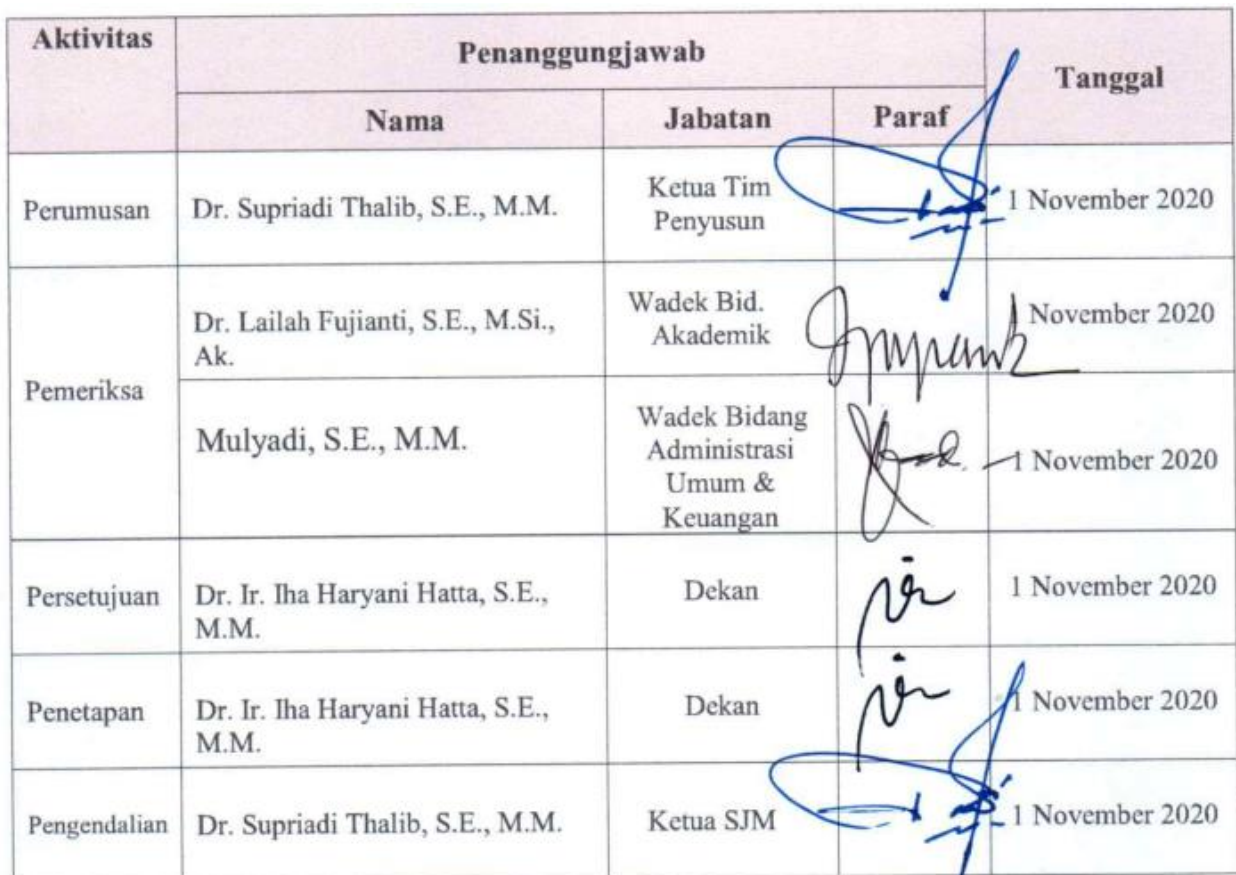 Aktivitas
Penanggungjawab
Tanggal
Nama
Jabatan
Paraf
Perumusan
Dr. Supriadi Thalib, S.E., M.M.
Ketua Tim
Penyusun
1 November 2020
Pemeriksa
Dr. Lailah Fujianti, S.E., M.Si.,
Ak.
Wadek Bid.
Akademik
November 2020
Mulyadi, S.E., M.M.
Wadek Bidang
Administrasi
Umum &
Keuangan
1 November 2020
Persetujuan
Dr. Ir. Iha Haryani Hatta, S.E.,
M.M.
Dekan
1 November 2020
Penetapan
Dr. Ir. Iha Haryani Hatta, S.E.,
M.M.
Dekan
1 November 2020
Pengendalian
Dr. Supriadi Thalib, S.E., M.M.
Ketua SJM
1 November 2020